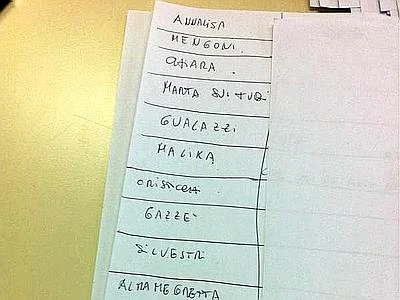 ANNALISA
MENGONI.
CHIARA.
MARTA SUI TUBI
GUALAZZI
MALIKA
CRISTICCHI
GAZZE'
SILVESTRI
ALMAMEGRETTA